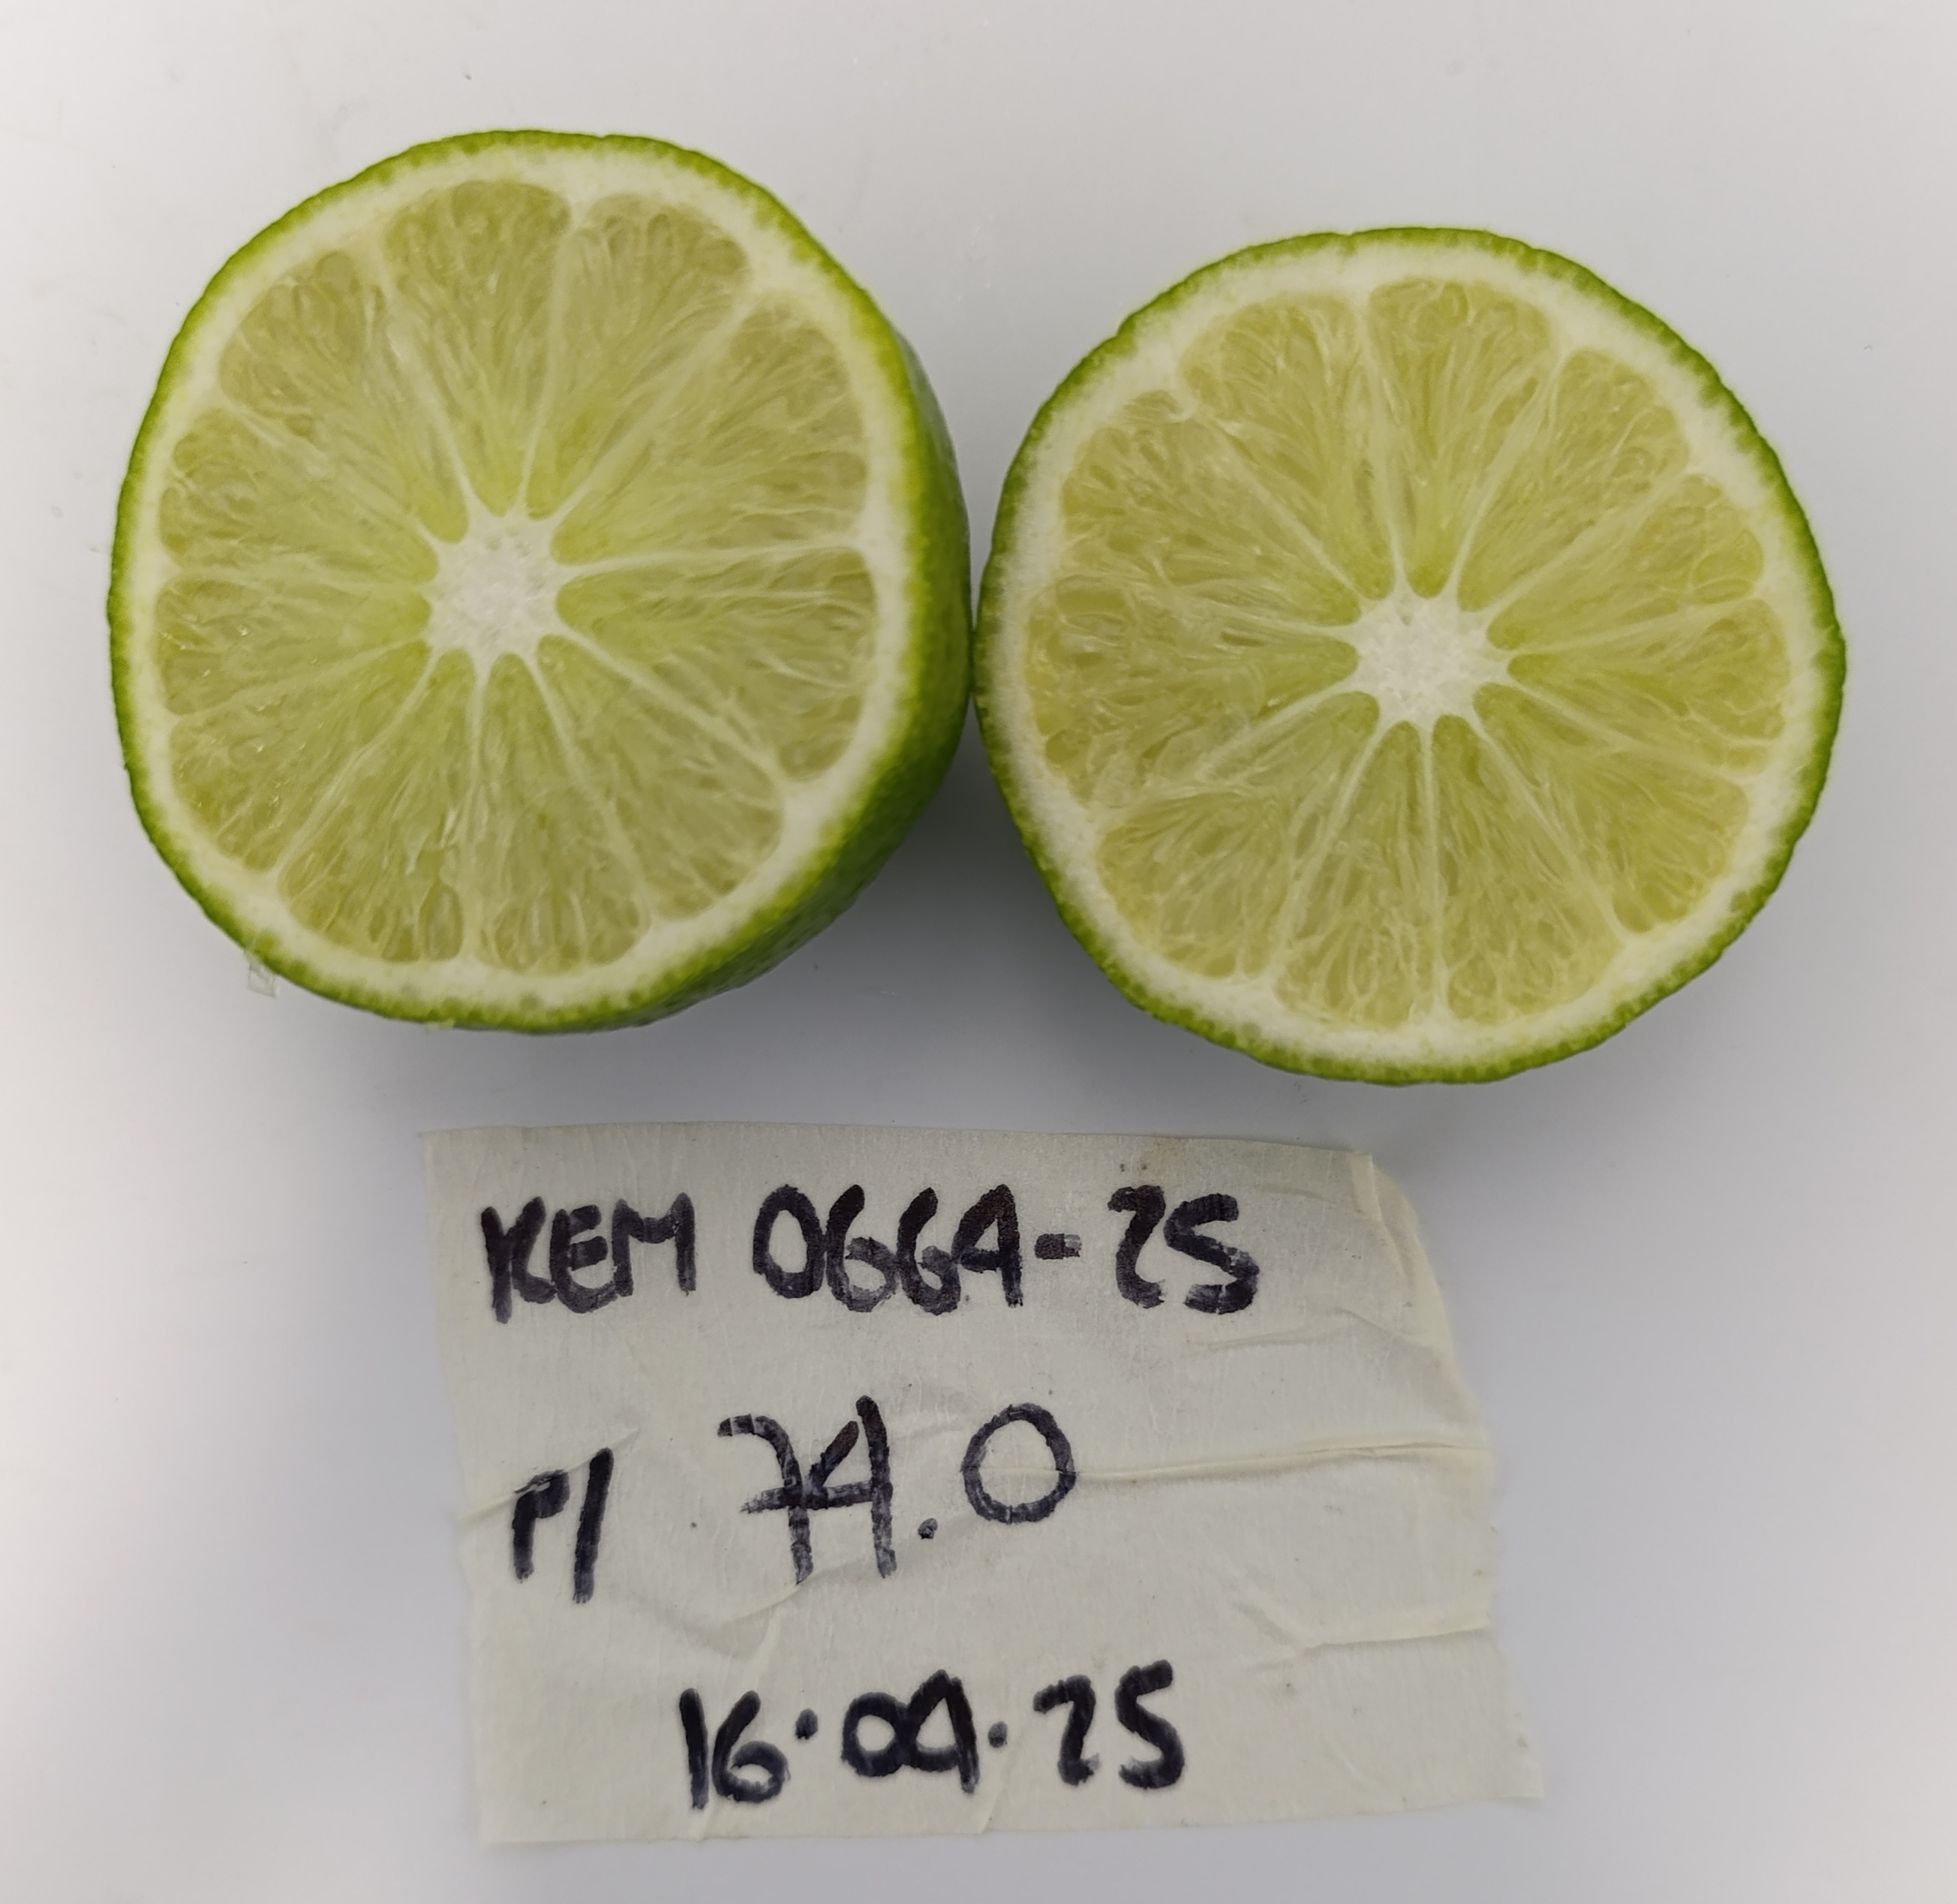 KEM 0664-25
P/ 74.0
16.04.25